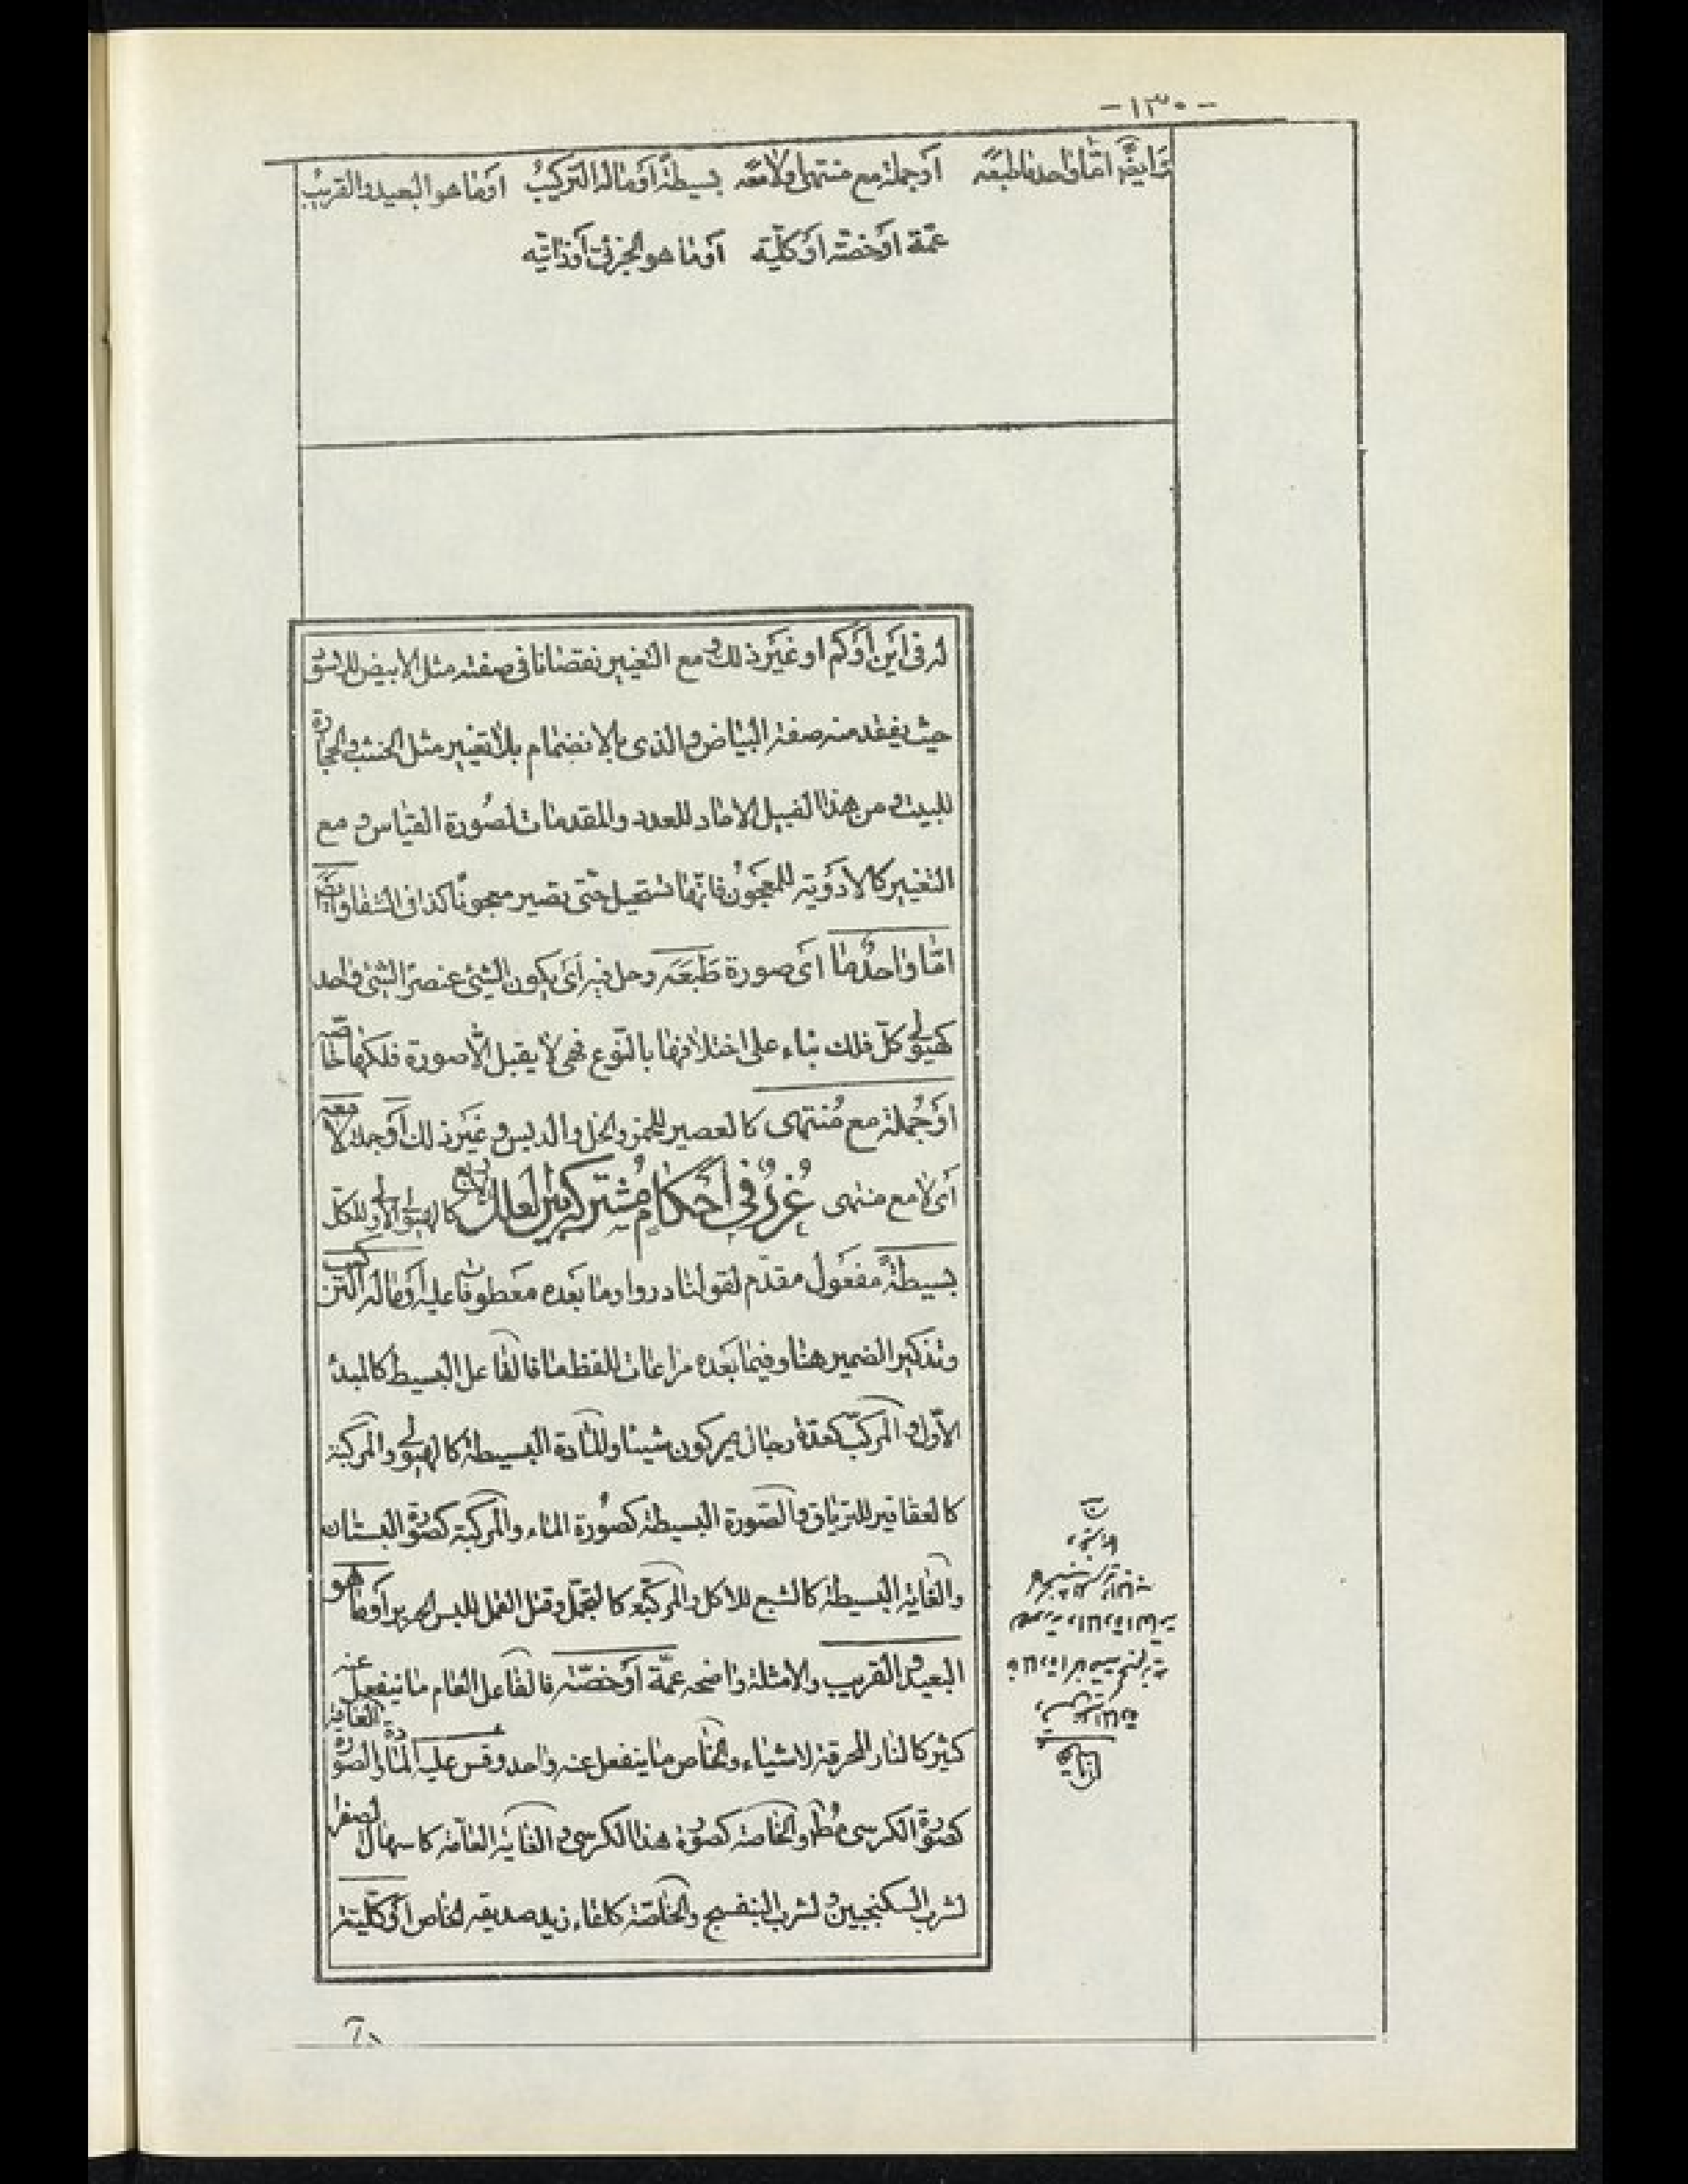 -١٣٠-
وأيضًا امّا واحدًا ما طبعه أوجملة مع منتهى أولا معه بسيطة أو ما له التركيب أوما هو البعيد والقريب
عمّة اوخصّته اوكلّية أوما هو الجزئى أوذاتيّه
له فى أين أوكم او غير ذلك ومع التغيير نقصانا فى صفته مثل الابيض للاسود
حيث يفقد منه صفة البياض والذى بالانضمام بلا تغيير مثل الخشب والحجارة
للبيت ومن هذا القبيل الاحاد للعدد والمقدمات لصورة القياس ومع
التغيير كالادوية للمعجون فانّها تستحيل حتّى تصير معجونًا كذا فى الشفا وأيضا
امّا واحدًا ما اى صورة طبعه وحل فيه أى يكون الشئ عنصر الشئ واحد
كهيولى كلّ فلك بناء على اختلافها بالنّوع فهى لا يقبل الّا صورة فلكها خاصّة
اوجُملة مع مُنتهى كالعصير للخمر والخل والدبس وغير ذلك أوجملة لا معه
أى لا مع منتهى غُررٌ فى أحكام مُشتركة بين العلل الاربع كالهيولى الأولى للكلّ
بسيطةً مفعول مقدّم لقولنا دروا وما بعده معطوفات عليه أوما له التركيب
وتذكير الضمير هنا وفيما بعده مراعات للفظ ما فالفاعل البسيط كالمبدء
الأوّل والمركّب كعدة رجال يحركون شيئا وللمادة البسيطة كالهيولى والمركبة
كالعقاقير للترياق والصّورة البسيطة كصُورة الماء والمركبة كصورة البستان
والغاية البسيطة كالشبع للاكل والمركّبة كالتجمّل وقتل القمل للبس الحرير أوما هو
البعيد والقريب والامثلة واضحه عمّة أوخصّته فالفاعل العام ما ينفعل عنه
كثير كالنار المحرقة لاشياء والخاص ما ينفعل عنه واحد وقس عليه المادّة والصّورة العامّة
كصورة الكرسى مُطلقا والخاصة كصورة هذا الكرسى والغاية العامّة كاسهال الصفرا
لشرب السكنجبين ولشرب البنفسج والخاصّة كلقاء زيد صديقه الخاص أوكلّيتة